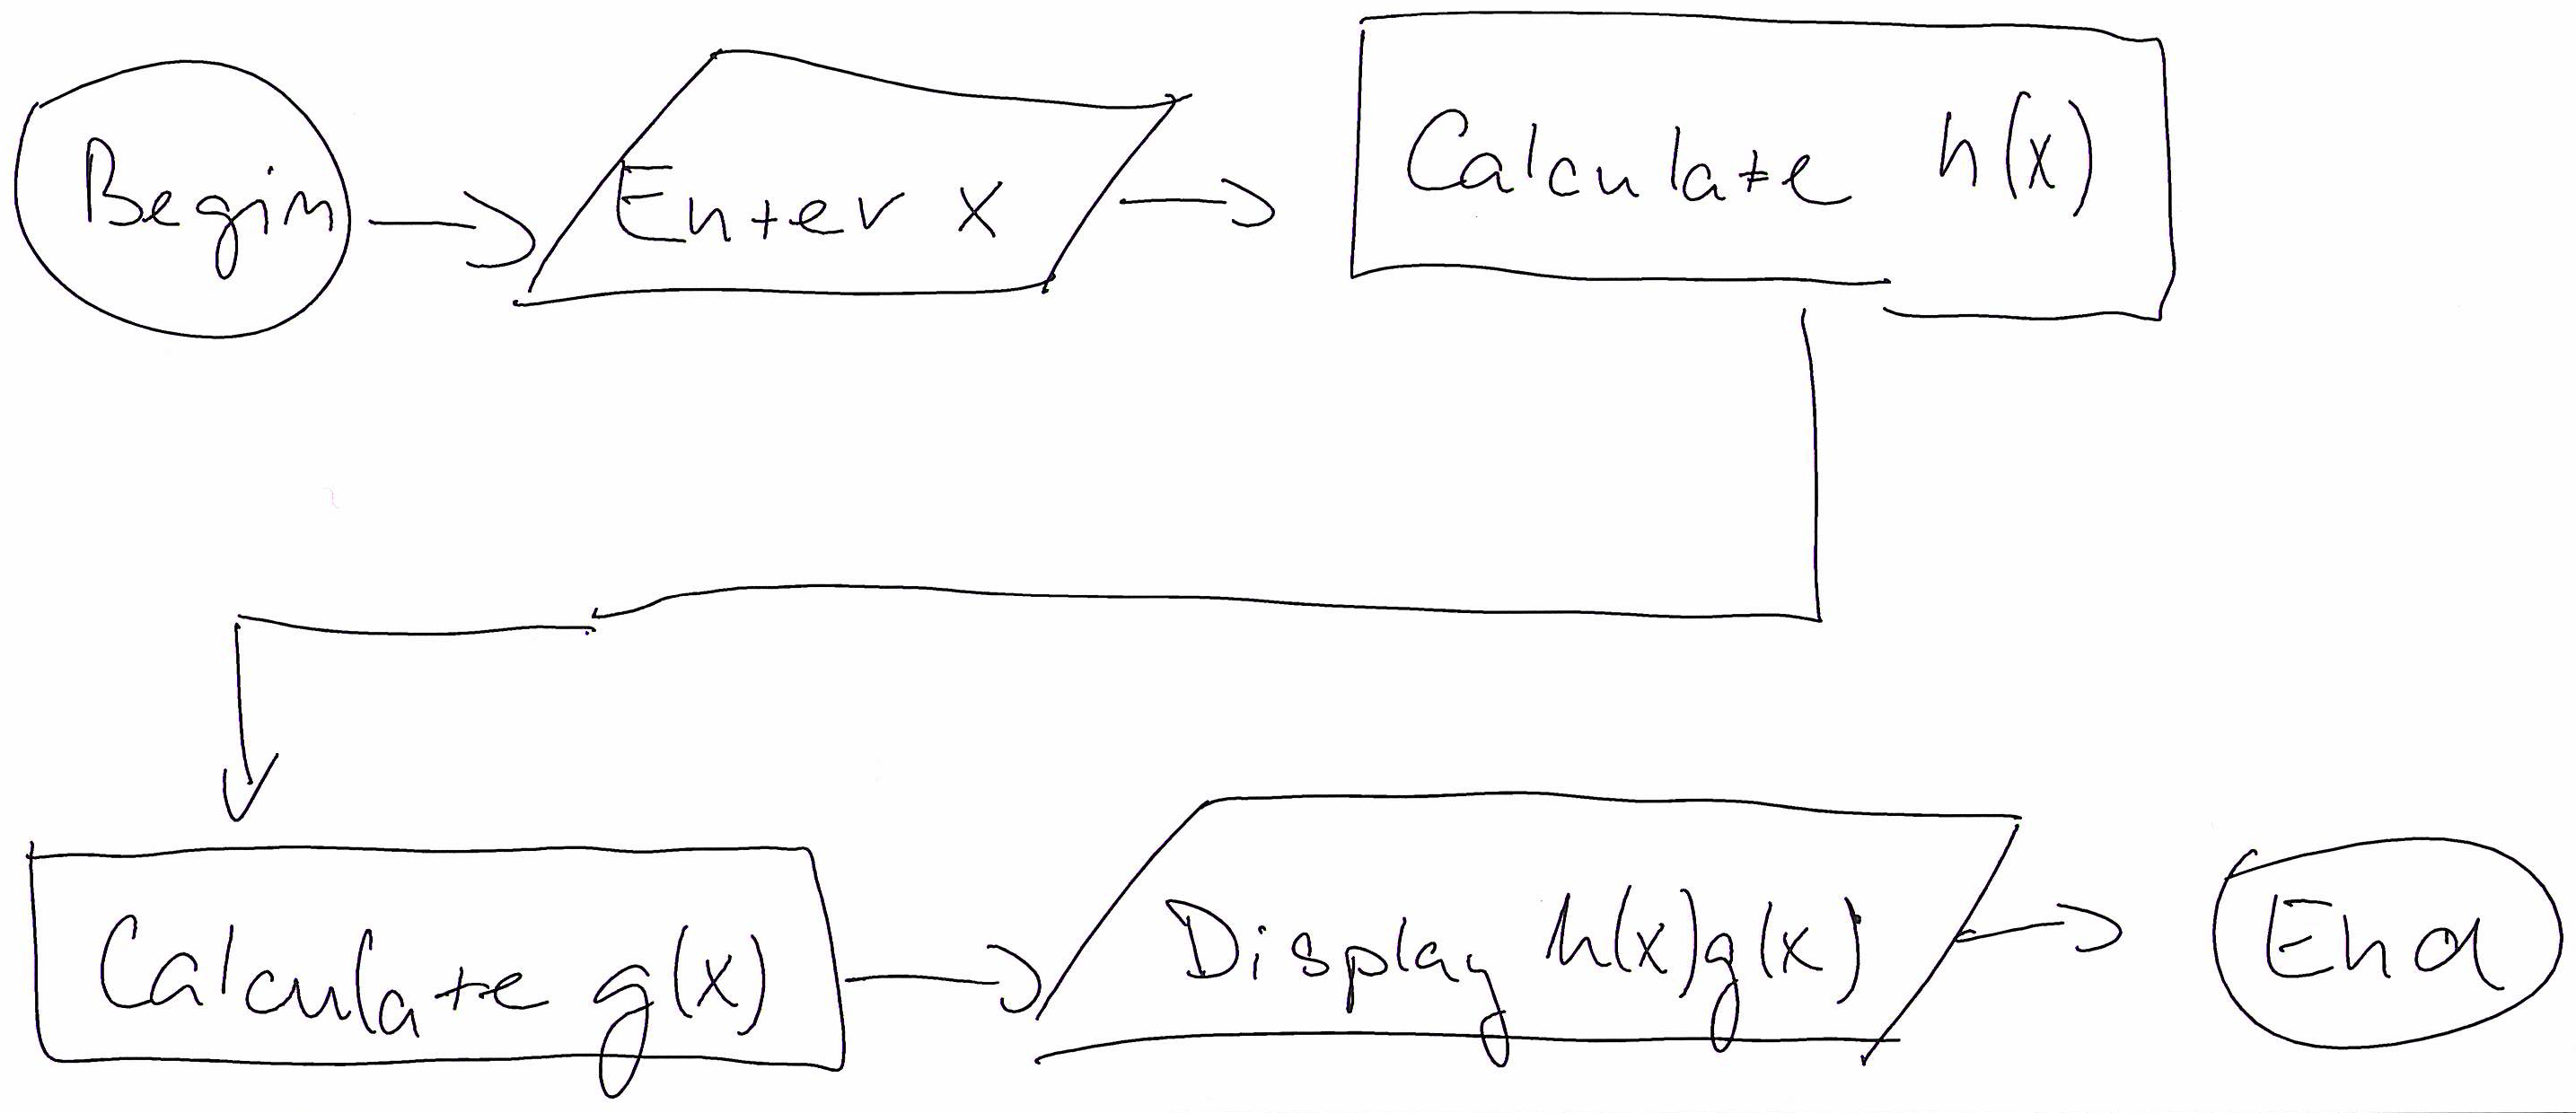 Begin
Enter x
Calculate h(x)
Calculate g(x)
Display h(x)g(x)
End